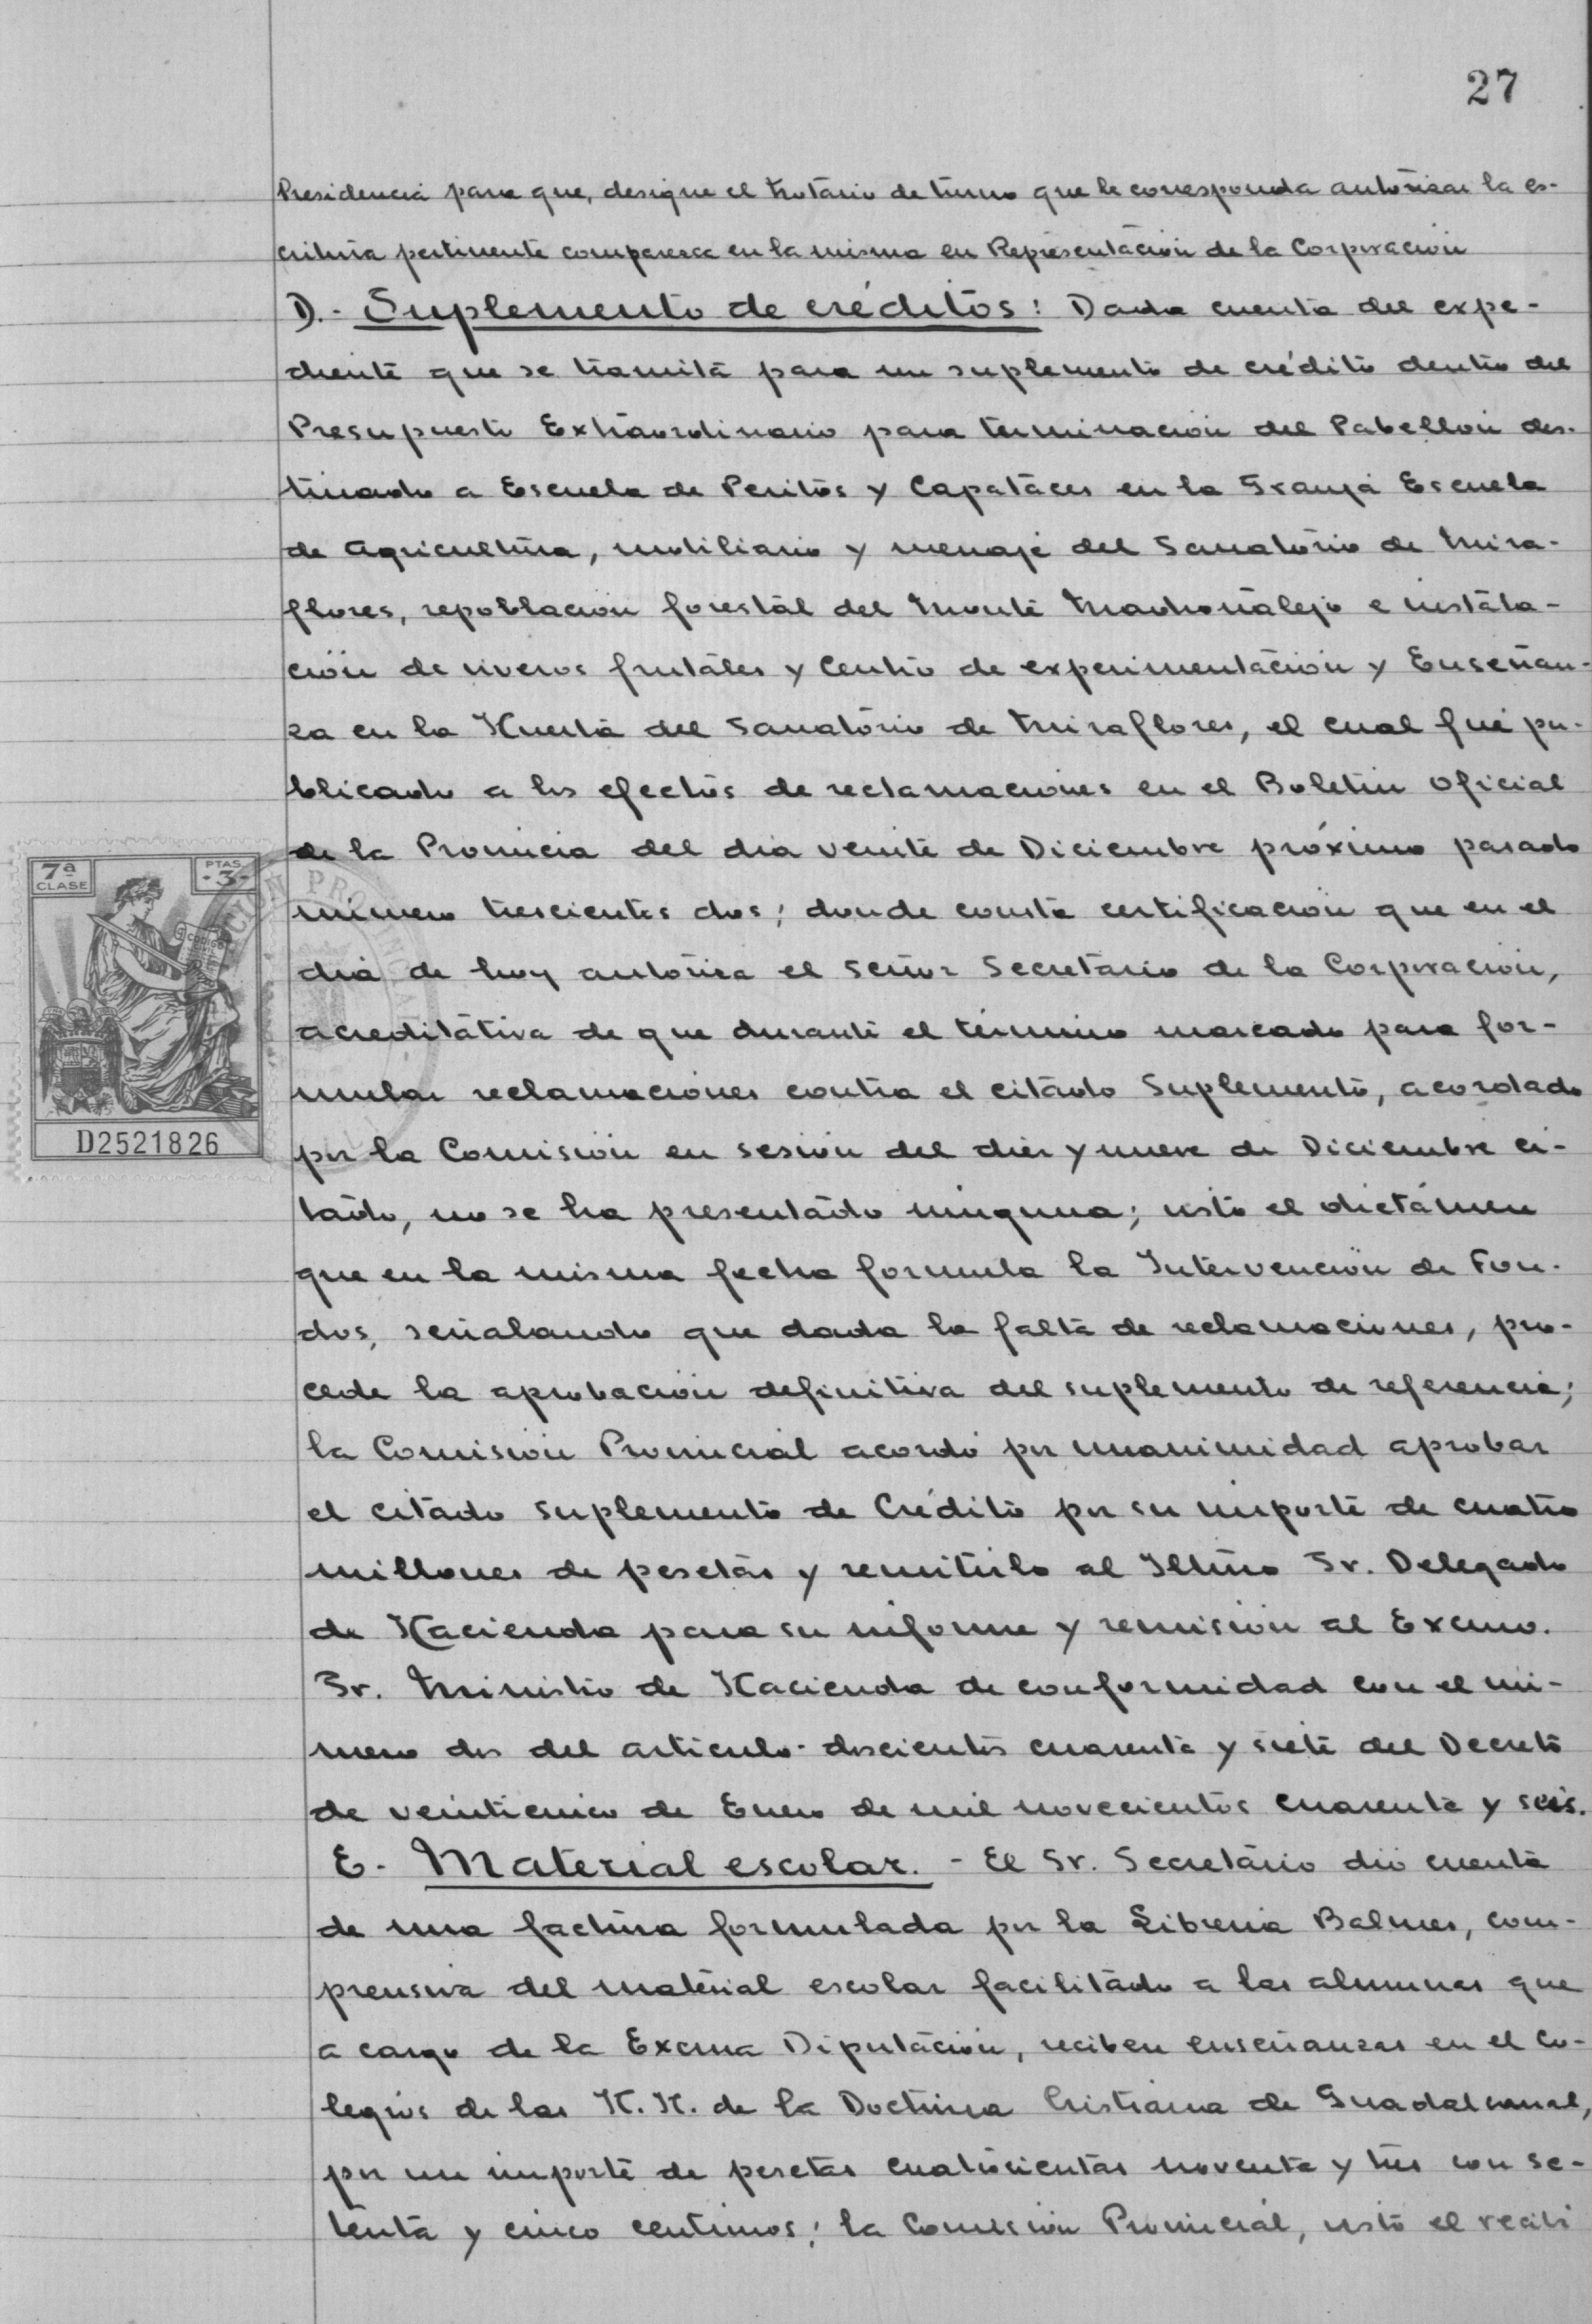 27
Presidencia para que, designe el Notario de turno que le corresponda autorizar la es-
critura pertinente comparezca en la misma en Representación de la Corporación
D.- Suplemento de créditos: Dada cuenta del expe-
diente que se tramita para un suplemento de crédito dentro del
Presupuesto Extraordinario para terminación del Pabellón des-
tinado a Escuela de Peritos y Capataces en la Granja Escuela
de Agricultura, mobiliario y menaje del Sanatorio de Mira-
flores, repoblación forestal del Monte Madroñalejo e instala-
ción de viveros frutales y Centro de experimentación y Enseñan-
za en la Huerta del Sanatorio de Miraflores, el cual fué pu-
blicado a los efectos de reclamaciones en el Boletín Oficial
de la Provincia del día veinte de Diciembre próximo pasado
número trescientos dos; donde consta certificación que en el
día de hoy autoriza el Señor Secretario de la Corporación,
acreditativa de que durante el término marcado para for-
mular reclamaciones contra el citado Suplemento, acordado
por la Comisión en sesión del diez y nueve de Diciembre ci-
tado, no se ha presentado ninguna; visto el dictámen
que en la misma fecha formula la Intervención de Fon-
dos, señalando que dada la falta de reclamaciones, pro-
cede la aprobación definitiva del suplemento de referencia;
la Comisión Provincial acordó por unanimidad aprobar
el citado suplemento de Crédito por su importe de cuatro
millones de pesetas y remitirlo al Iltmo Sr. Delegado
de Hacienda para su informe y remisión al Excmo.
Sr. Ministro de Hacienda de conformidad con el nú-
mero dos del artículo doscientos cuarenta y siete del Decreto
de veinticinco de Enero de mil novecientos cuarenta y seis.
E- Material escolar.- El Sr. Secretario dió cuenta
de una factura formulada por la Librería Balmes, com-
prensiva del material escolar facilitado a las alumnas que
a cargo de la Excma Diputación, reciben enseñanzas en el Co-
legios de las H.H. de la Doctrina Cristiana de Guadalcanal,
por un importe de pesetas cuatrocientas noventa y tres con se-
tenta y cinco centimos; la Comisión Provincial, visto el recibí
7ª
CLASE
PTAS.
-3-
CODIGO
D2521826